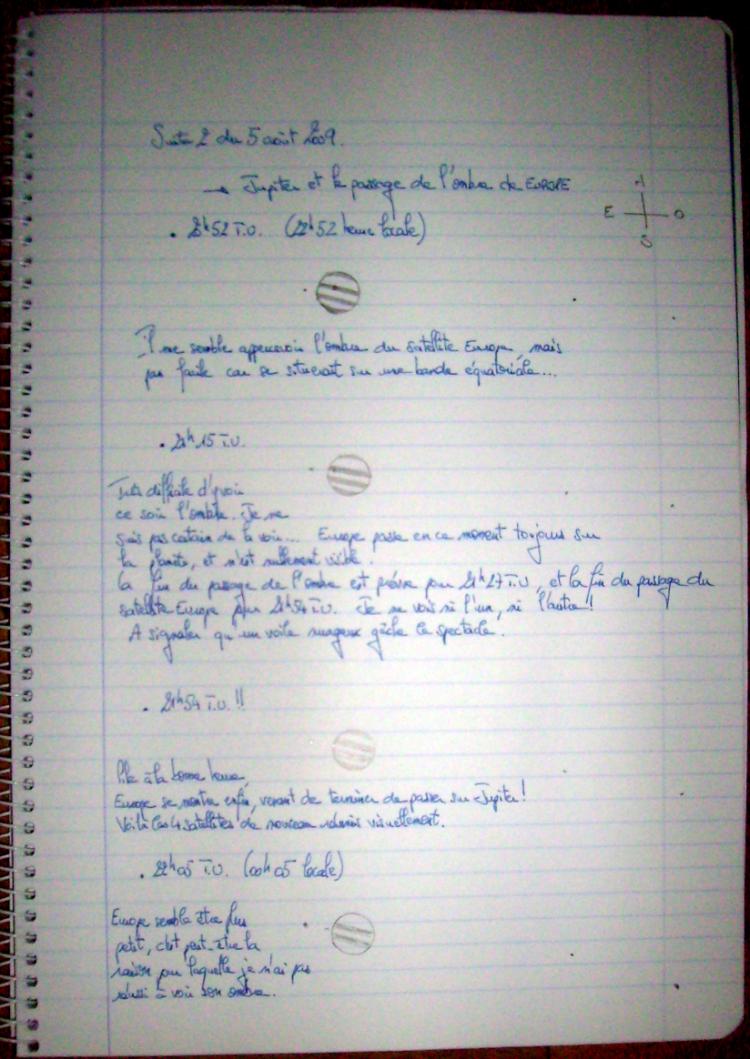 Suite 2 du 5 août 2009.
→ Jupiter et le passage de l'ombre de EUROPE
N
E O
S
• 20h52 T.U. (22h52 heure locale)
Il me semble appercevoir l'ombre du satellite Europe, mais
pas facile car se situerait sur une bande équatoriale...
• 21h15 T.U.
Très difficile d'y voir
ce soir l'ombre. Je ne
suis pas certain de la voir... Europe passe en ce moment toujours sur
la planète, et n'est nullement visible.
La fin du passage de l'ombre est prévue pour 21h27 T.U, et la fin du passage du
satellite Europe pour 21h54 T.U. Je ne vois ni l'un, ni l'autre!!
A signaler qu'un voile nuageux gâche le spectacle.
• 21h54 T.U.!!
Pile à la bonne heure,
Europe se montre enfin, venant de terminer de passer sur Jupiter!
Voilà les 4 satellites de nouveau réunis visuellement.
• 22h05 T.U. (00h05 locale)
Europe semble être plus
petit, c'est peut-être la
raison pour laquelle je n'ai pas
réussi à voir son ombre.